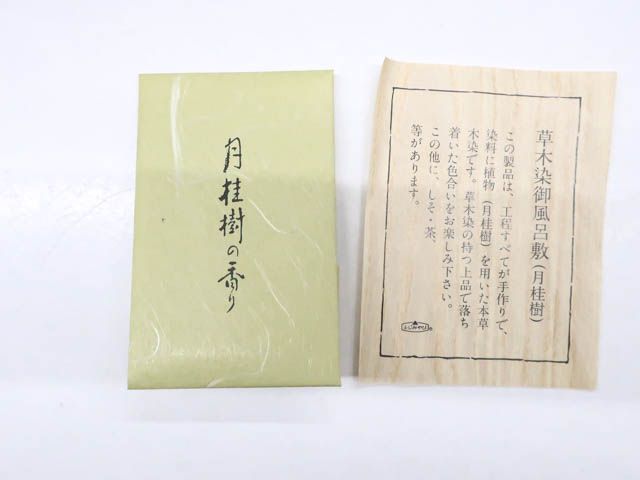 月桂樹の香り
草木染御風呂敷(月桂樹)
この製品は、工程すべてが手作りで、
染料に植物(月桂樹)を用いた本草
木染です。草木染の持つ上品で落ち
着いた色合いをお楽しみ下さい。
この他に、しそ・茶、
等があります。